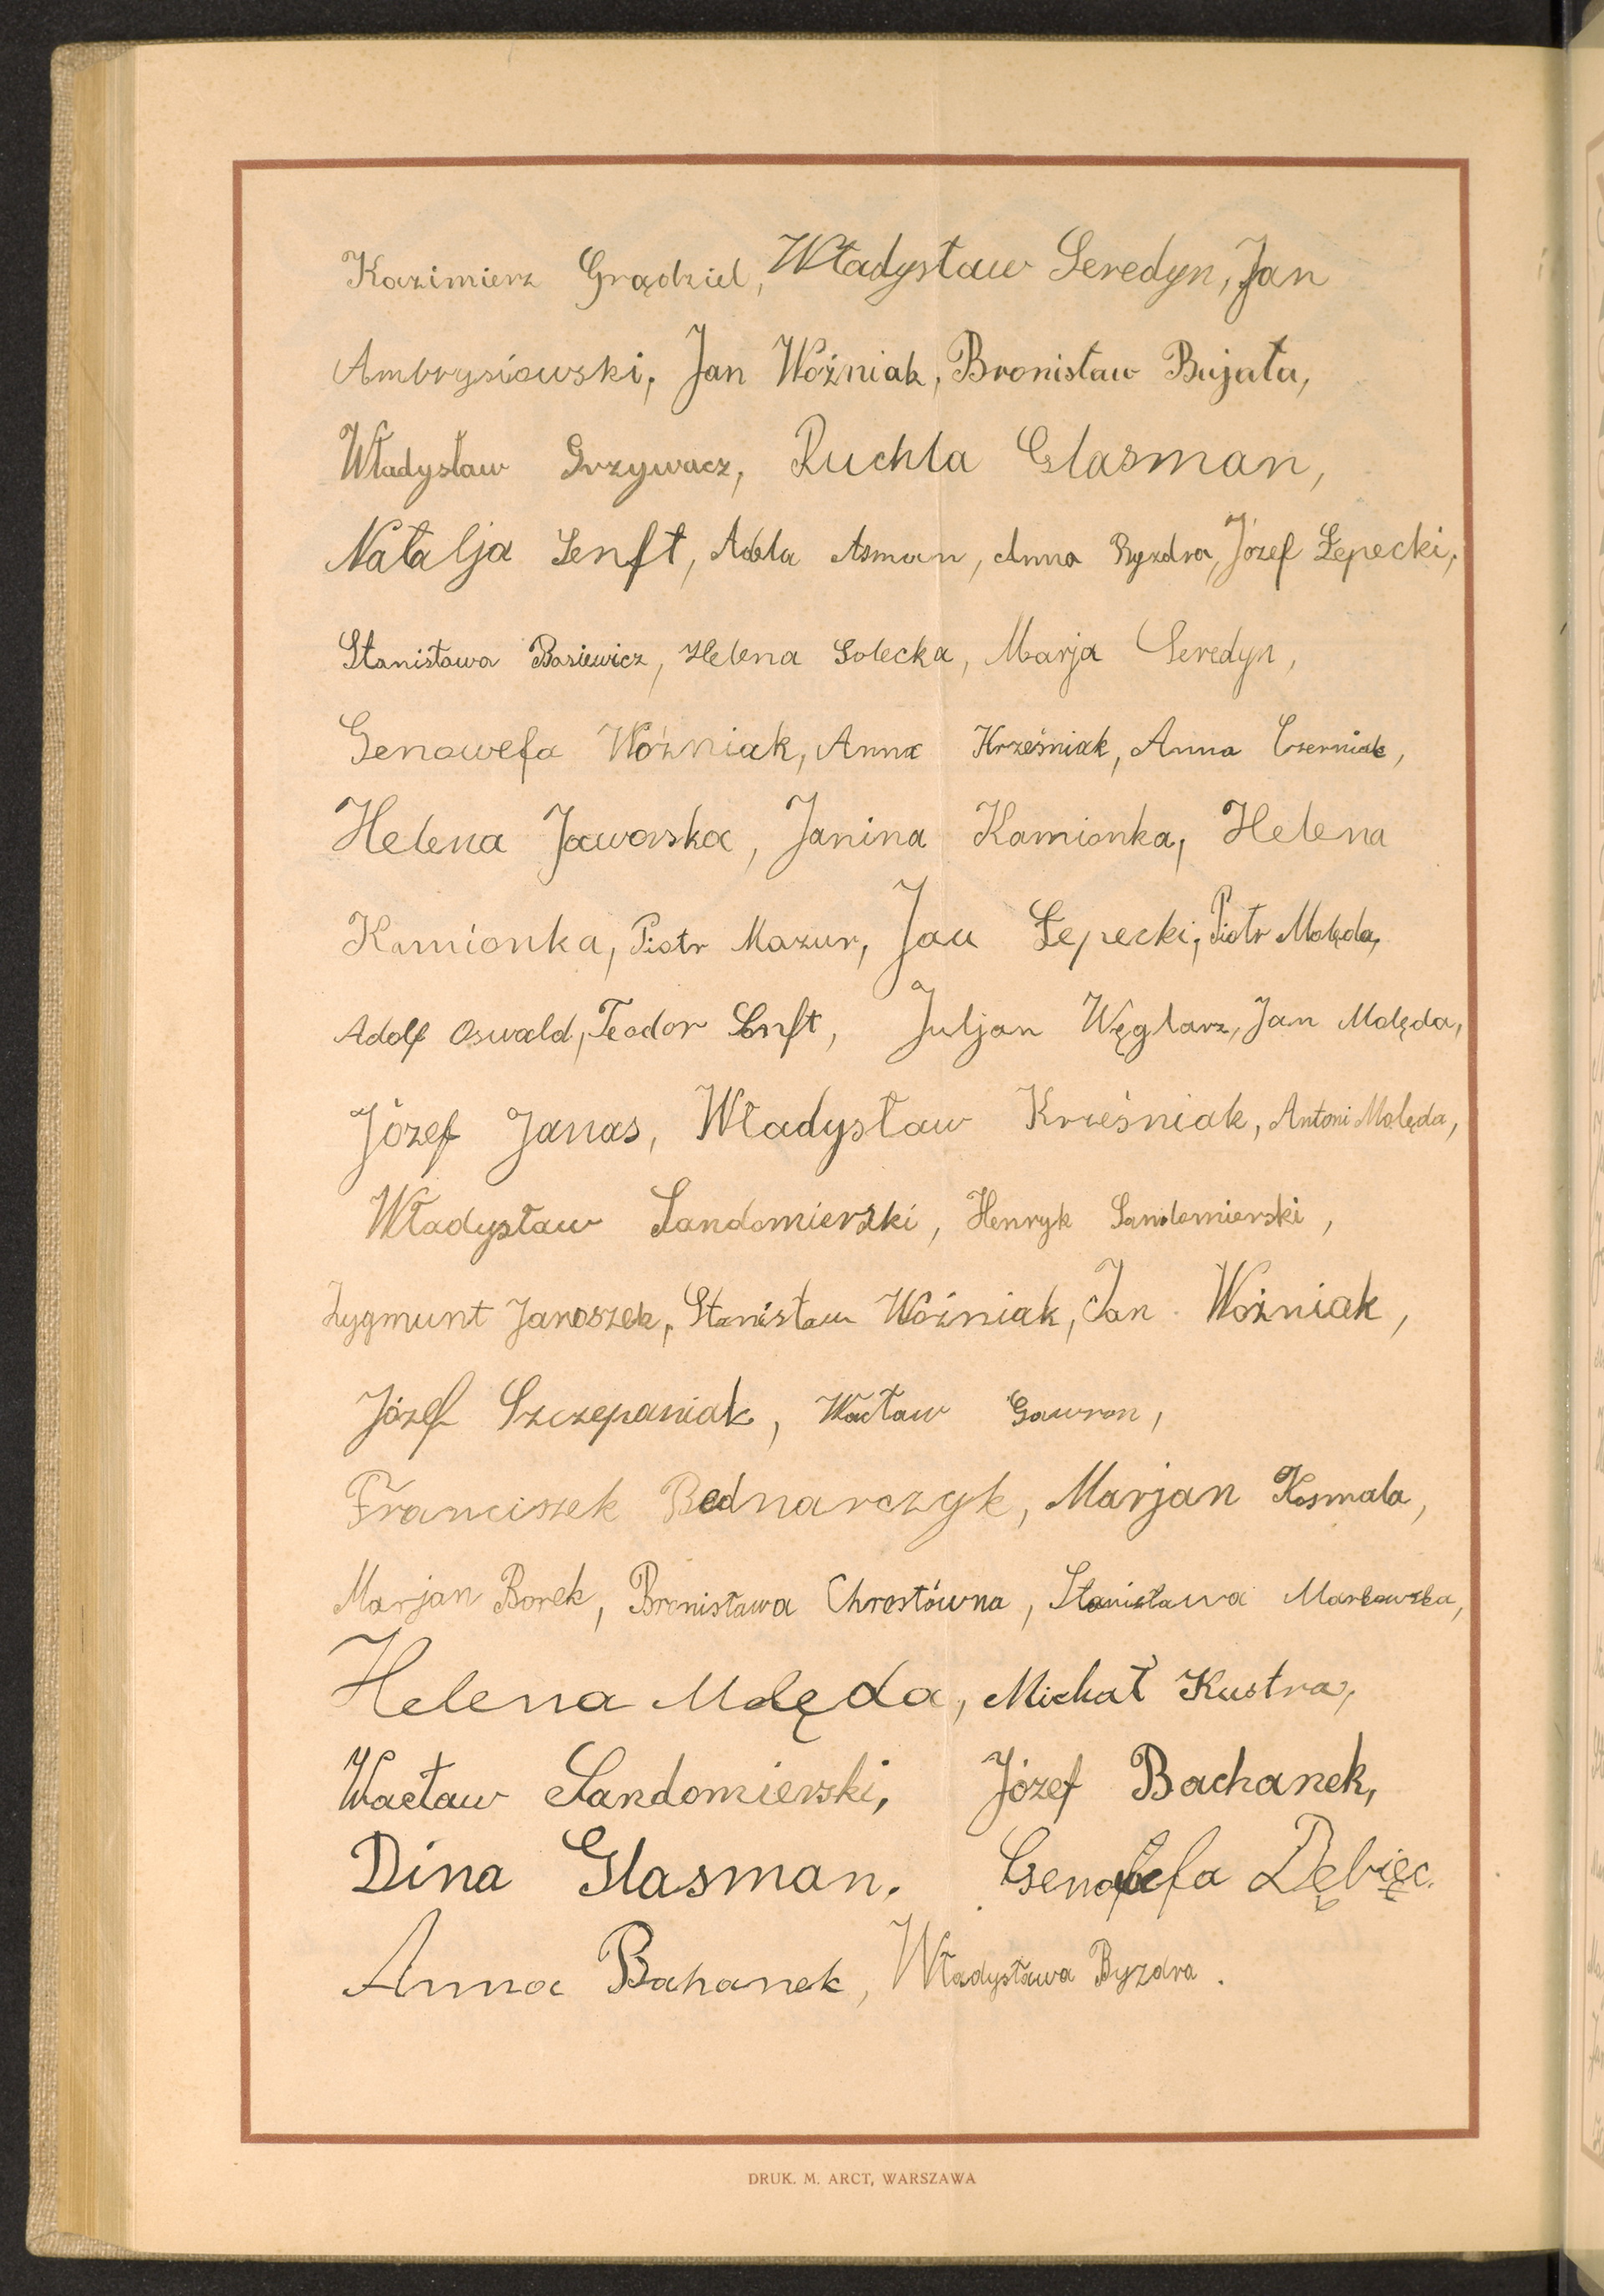 Kazimierz Grądziel, Władysław Seredyn, Jan
Ambrysiowski, Jan Woźniak, Bronisław Bujała,
Władysław Grzywacz, Ruchla Glasman,
Natalja Senft, Adela Asman, Anna Byzdra, Józef Łepecki,
Stanisława Basiewicz, Helena Solecka, Marja Seredyn,
Genowefa Woźniak, Anna Krześniak, Anna Czerniak,
Helena Jaworska, Janina Kamionka, Helena
Kamionka, Piotr Mazur, Jan Łepecki, Piotr Molęda,
Adolf Oswald, Teodor Senft, Juljan Węglarz, Jan Molęda,
Józef Janas, Władysław Krześniak, Antoni Molęda,
Władysław Sandomierski, Henryk Sandomierski,
Zygmunt Janoszek, Stanisław Woźniak, Jan Woźniak,
Józef Szczepaniak, Wacław Gawron,
Franciszek Bednarczyk, Marjan Kosmala,
Marjan Borek, Bronisława Chrostówna, Stanisława Markowska,
Helena Molęda, Michał Kustra,
Wacław Sandomierski, Józef Bachanek,
Dina Glasman. Genowefa Dębięc.
Anna Bahanek, Władysława Byzdra.
DRUK. M. ARCT, WARSZAWA